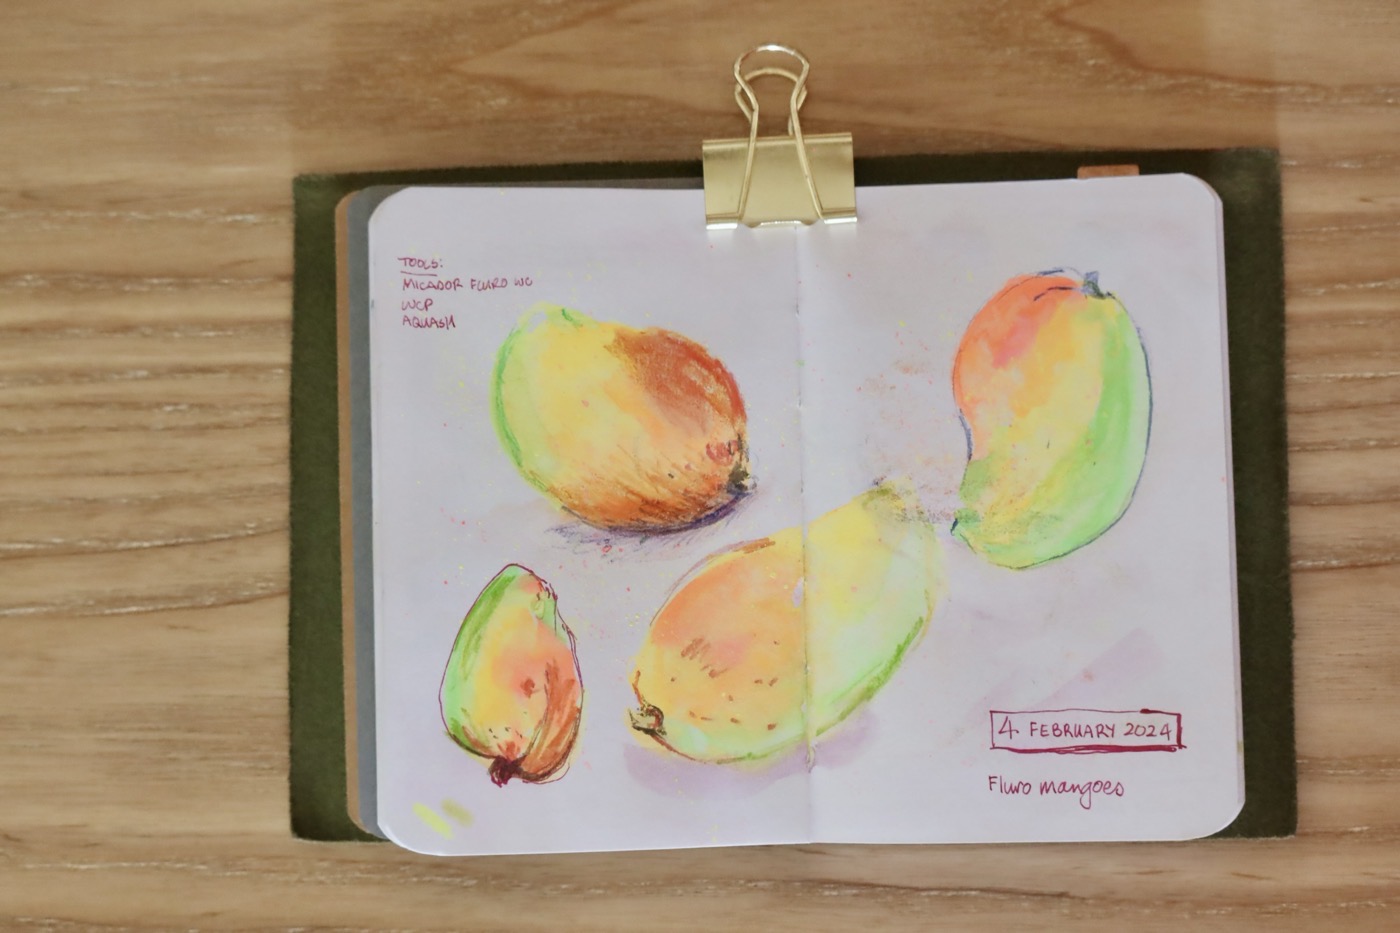 TOOLS:
MICADOR FLURO WC
WCP
AQUASH
4 FEBRUARY 2024
Fluro mangoes